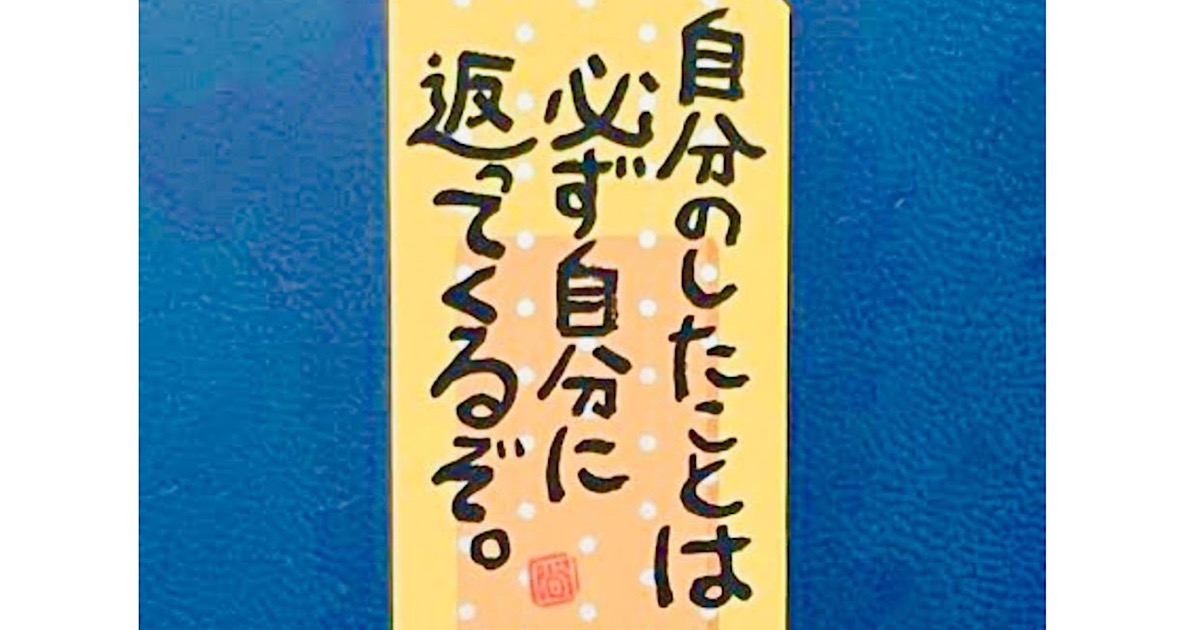 自分のしたことは
必ず自分に
返ってくるぞ。